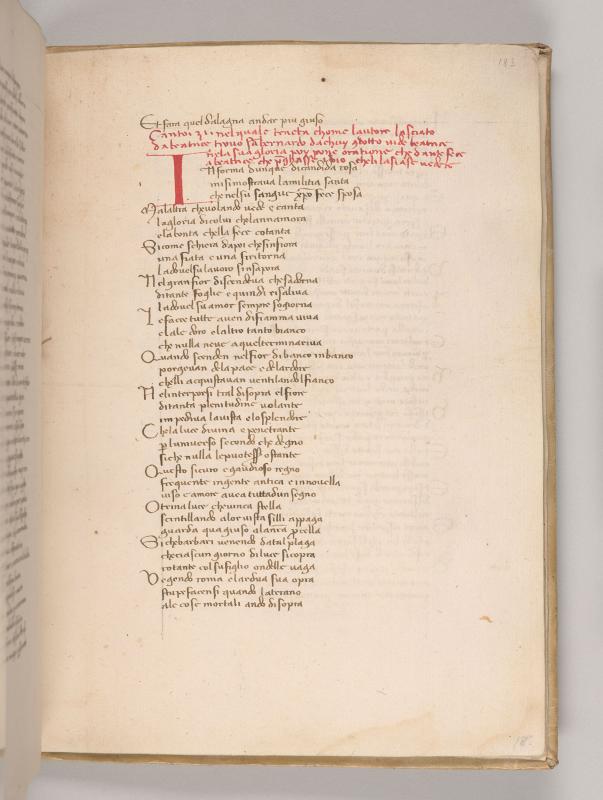 183
Et fara quel dalagna andar piu giuso
Canto 31 nel quale teneta chome lautore lasciato
da beatrice trovo san bernardo da chuy gdotto vide beatrice
nela sua gloria poy pone oratione che dante fece
a beatrice che pregasse idio che li lasiase vedere
In forma dunque di candida rosa
mi si mostrava la militia santa
che nel suo sangue xpo fece sposa
Ma laltra che volando vede e canta
la gloria di colui che lannamora
e la bonta che la fece cotanta
Si come schiera dapoi che sinfiora
una fiata e una si ritorna
la dove lsu lavoro sinsapora
Nel gran fior discendeva che saderna
di tante foglie e quindi risaliva
la dovel su amor sempre sogiorna
Le facce tutte aven di fiamma viva
e lale doro e laltro tanto bianco
che nulla neve a quel termin ariva
Quando scenden nel fior di banco in banco
porgevan de la pace e de lardore
chelli acquistavan ventilandol fianco
Ne linterporsi tral di sopra el fiore
di tanta plenitudine volante
impediva la vista e lo splendore
Che la luce divina e penetrante
per luniverso secondo che degno
si che nulla le puote essere ostante
Questo sicuro e gaudioso regno
frequente in gente antica e in novella
viso e amore avea tutta dun segno
O trina luce che unica stella
scintillando a lor vista si lli appaga
guarda qua giuso a la nostra procella
Si che barbari venendo da tal plaga
che ciascun giorno di luce si copra
rotante col su figlio ondelle vaga
Vegendo roma e lardua sua opra
stupefacensi quando laterano
a le cose mortali ando di sopra